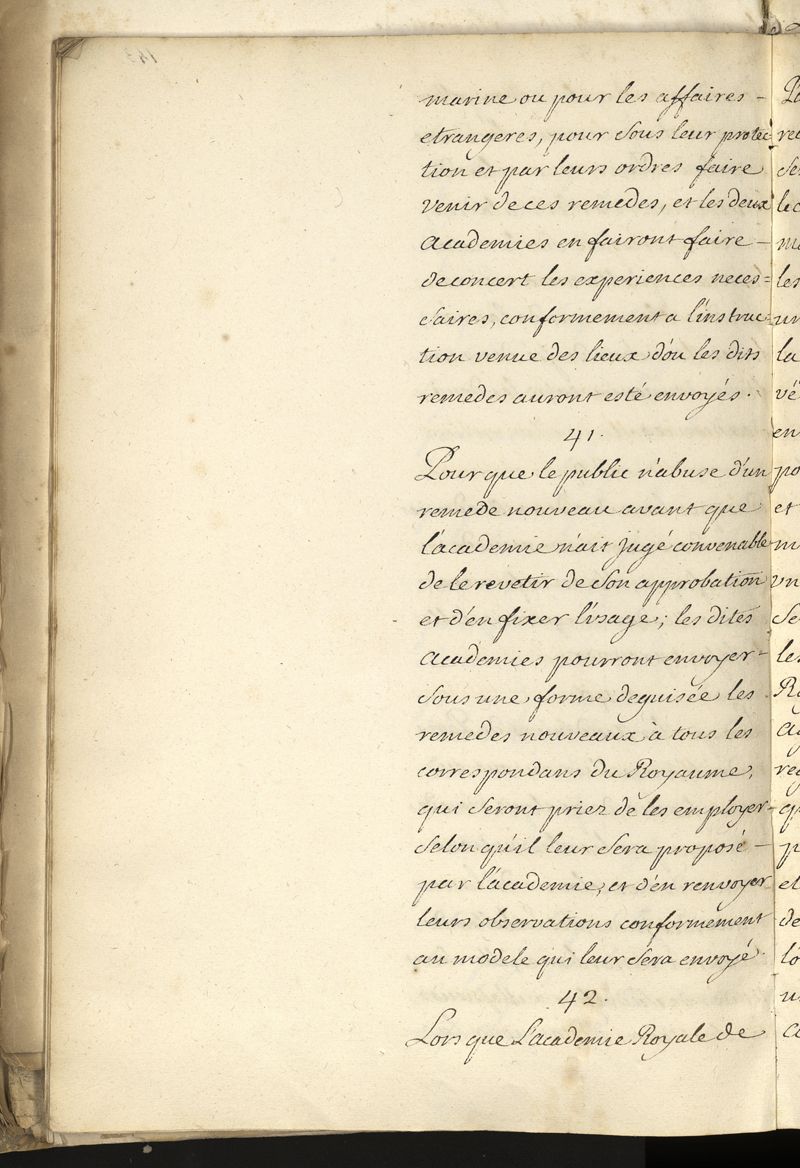 marine ou pour les affaires -
etrangeres, pour sous leur protec
tion et par leurs ordres faire
venir de ces remedes, et les deux
academies en fairont faire -
de concert les experiences neces=
saires, conformement a l'instruc=
tion venue des lieux d'ou les dits
remedes auront esté envoyés.
41.
Pour que le public n'abuse d'un
remede nouveau avant que
l'academie n'ait jugé convenable
de le revetir de son approbation
et d'en fixer l'usage; les dites
academies pourront envoyer -
sous une forme deguisée les
remedes nouveaux à tous les
correspondans du Royaume,
qui seront priez de les employer -
selon qu'il leur sera proposé -
par l'academie, et d'en renvoyer
leurs observations conformement
au modele qui leur sera envoyé.
42.
Lorsque L'academie Royale de